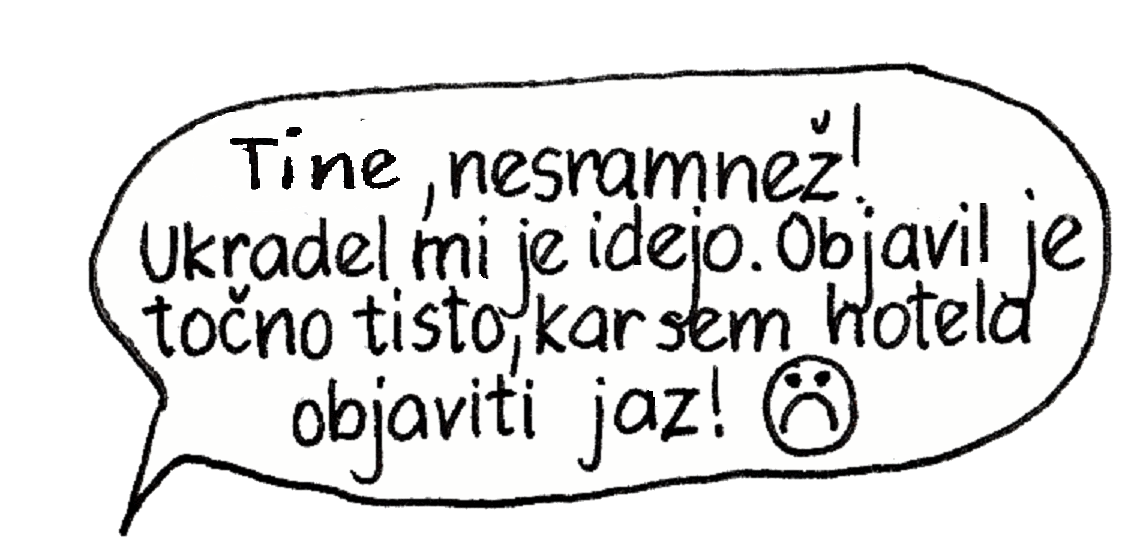 Tine, nesramnež!
Ukradel mi je idejo. Objavil je
točno tisto, kar sem hotela
objaviti jaz!